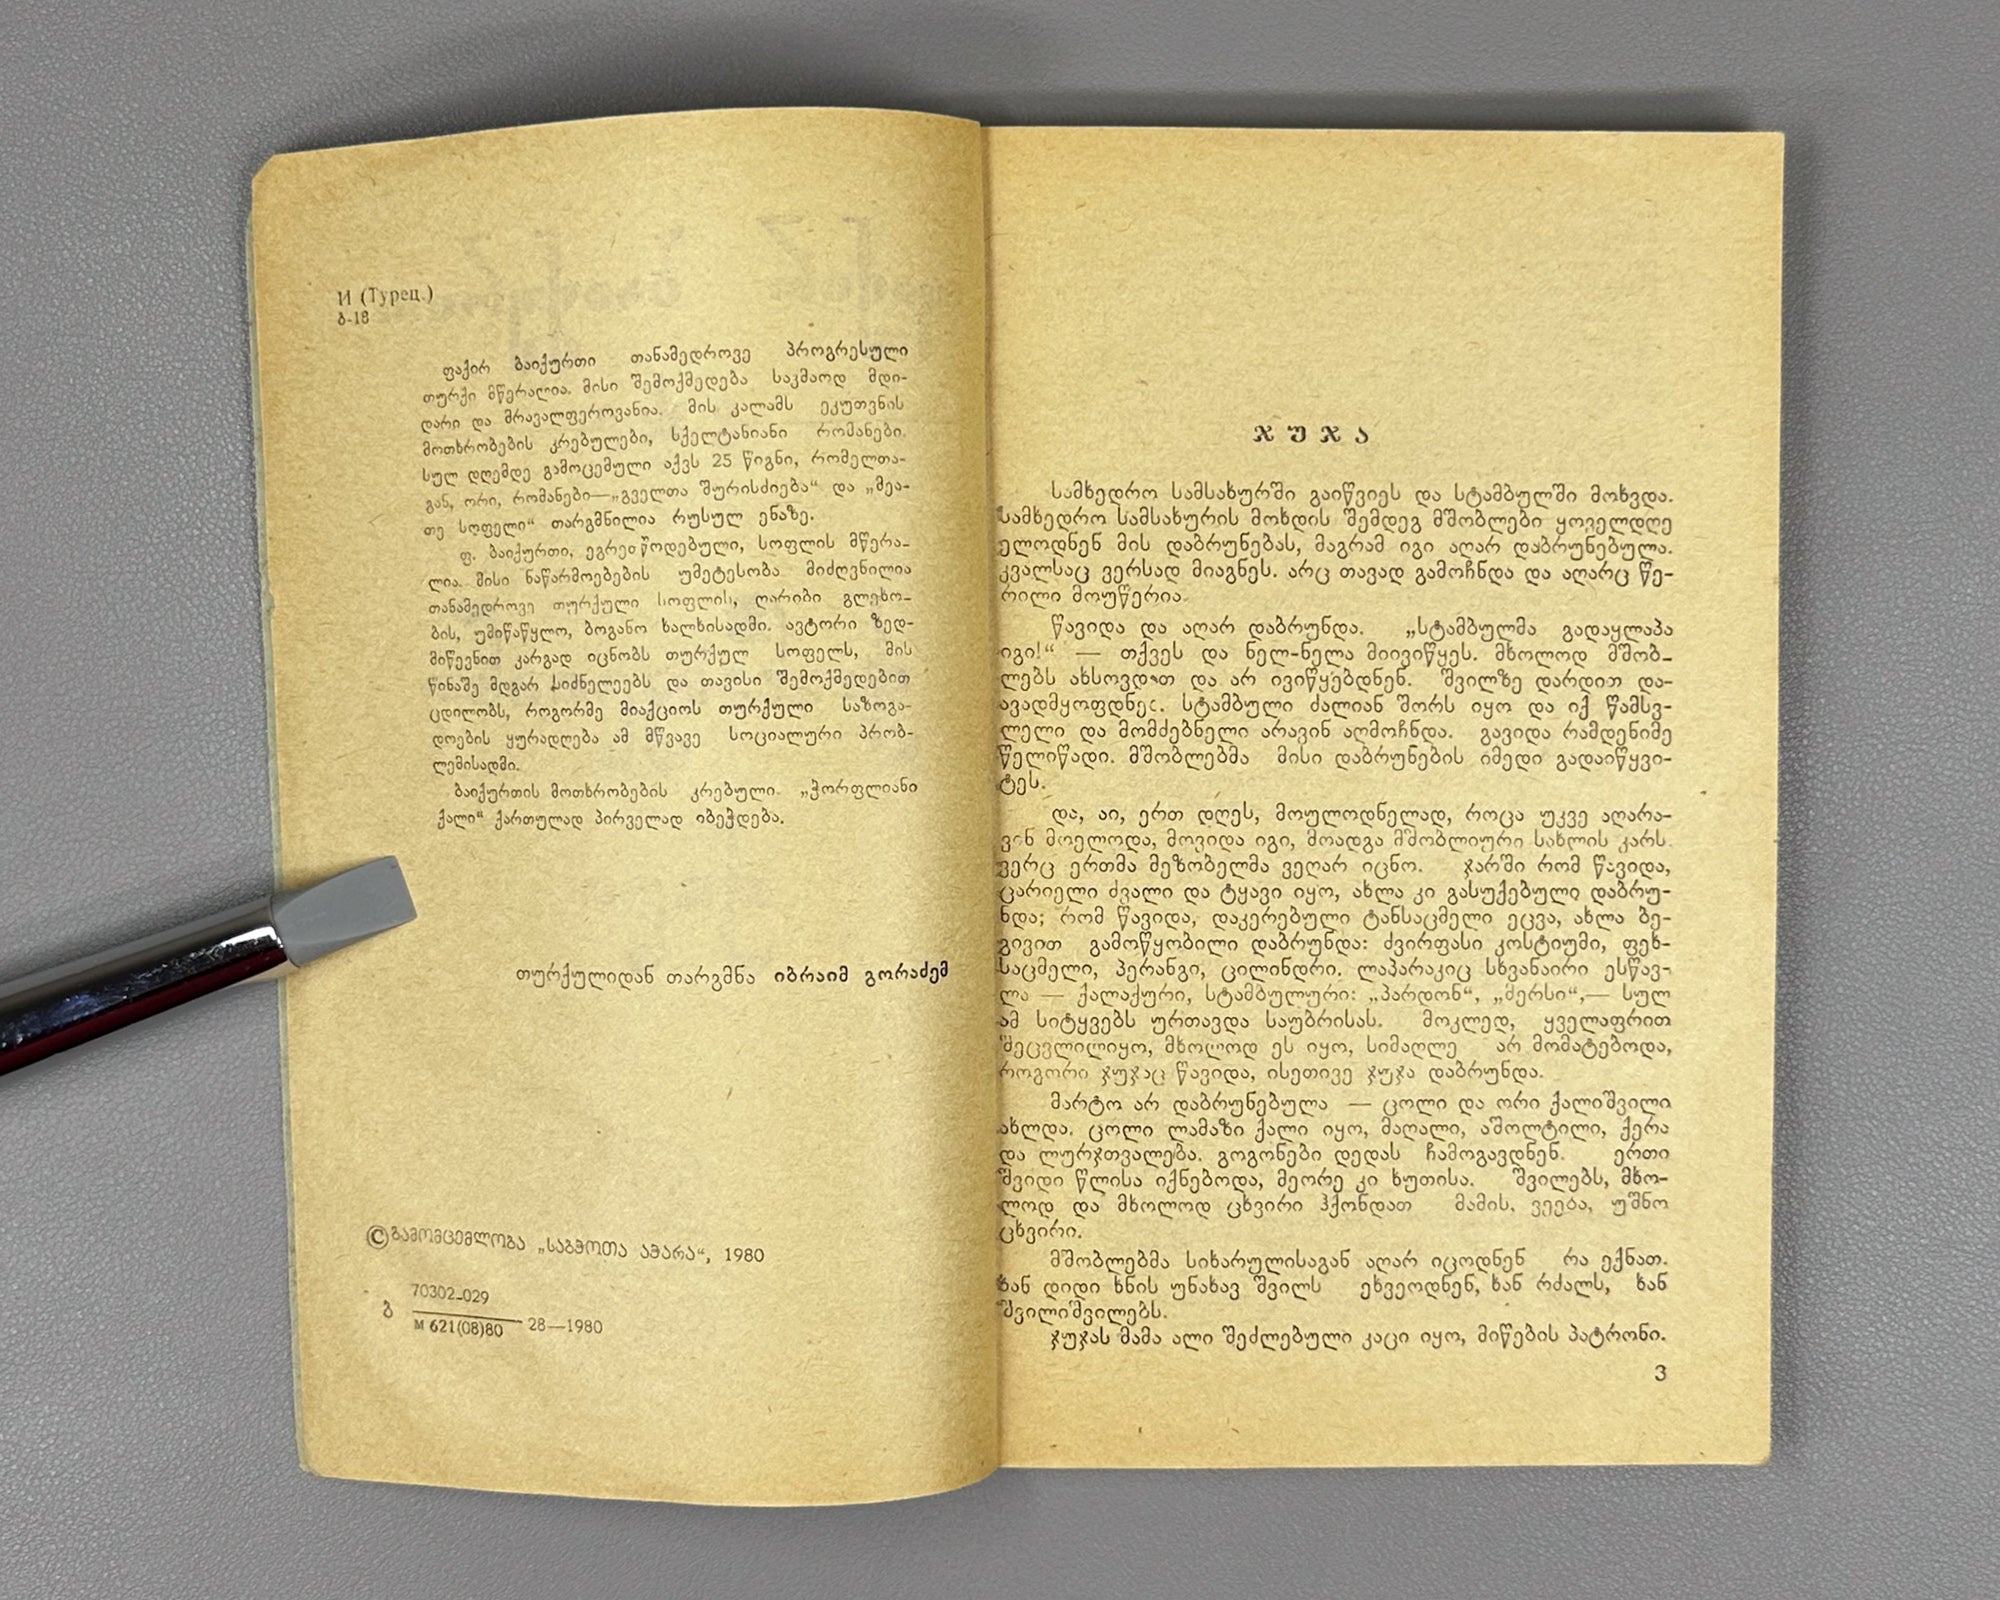 И (Турец.)
ბ-18
ფაქირ ბაიქურთი თანამედროვე პროგრესული
თურქი მწერალია. მისი შემოქმედება საკმაოდ მდი-
დარი და მრავალფეროვანია. მის კალამს ეკუთვნის
მოთხრობების კრებულები, სქელტანიანი რომანები.
სულ დღემდე გამოცემული აქვს 25 წიგნი, რომელთა-
გან, ორი, რომანები—„გველთა შურისძიება“ და „მეა-
თე სოფელი“ თარგმნილია რუსულ ენაზე.
ფ. ბაიქურთი, ეგრეთწოდებული, სოფლის მწერა-
ლია. მისი ნაწარმოებების უმეტესობა მიძღვნილია
თანამედროვე თურქული სოფლის, ღარიბი გლეხო-
ბის, უმიწაწყლო, ბოგანო ხალხისადმი. ავტორი ზედ-
მიწევნით კარგად იცნობს თურქულ სოფელს, მის
წინაშე მდგარ სიძნელეებს და თავისი შემოქმედებით
ცდილობს, როგორმე მიაქციოს თურქული საზოგა-
დოების ყურადღება ამ მწვავე სოციალური პრობ-
ლემისადმი.
ბაიქურთის მოთხრობების კრებული „ჭორფლიანი
ქალი“ ქართულად პირველად იბეჭდება.
თურქულიდან თარგმნა იბრაიმ გორაძემ
© გამომცემლობა „საბჭოთა აჭარა“, 1980
70302-029
ბ
М 621(08)80 28—1980
ჯუჯა
სამხედრო სამსახურში გაიწვიეს და სტამბულში მოხვდა.
სამხედრო სამსახურის მოხდის შემდეგ მშობლები ყოველდღე
ელოდნენ მის დაბრუნებას, მაგრამ იგი აღარ დაბრუნებულა.
კვალსაც ვერსად მიაგნეს. არც თავად გამოჩნდა და აღარც წე-
რილი მოუწერია.
წავიდა და აღარ დაბრუნდა. „სტამბულმა გადაყლაპა
იგი!“ — თქვეს და ნელ-ნელა მიივიწყეს. მხოლოდ მშობ-
ლებს ახსოვდათ და არ ივიწყებდნენ. შვილზე დარდით და-
ავადმყოფდნენ. სტამბული ძალიან შორს იყო და იქ წამსვ-
ლელი და მომძებნელი არავინ აღმოჩნდა. გავიდა რამდენიმე
წელიწადი. მშობლებმა მისი დაბრუნების იმედი გადაიწყვი-
ტეს.
და, აი, ერთ დღეს, მოულოდნელად, როცა უკვე აღარა-
ვინ მოელოდა, მოვიდა იგი, მოადგა მშობლიური სახლის კარს.
ვერც ერთმა მეზობელმა ვეღარ იცნო. ჯარში რომ წავიდა,
ცარიელი ძვალი და ტყავი იყო, ახლა კი გასუქებული დაბრუ-
ნდა; რომ წავიდა, დაკერებული ტანსაცმელი ეცვა, ახლა ბე-
გივით გამოწყობილი დაბრუნდა: ძვირფასი კოსტიუმი, ფეხ-
საცმელი, პერანგი, ცილინდრი. ლაპარაკიც სხვანაირი ესწავ-
ლა — ქალაქური, სტამბულური: „პარდონ“, „მერსი“,— სულ
ამ სიტყვებს ურთავდა საუბრისას. მოკლედ, ყველაფრით
შეცვლილიყო, მხოლოდ ეს იყო, სიმაღლე არ მომატებოდა,
როგორი ჯუჯაც წავიდა, ისეთივე ჯუჯა დაბრუნდა.
მარტო არ დაბრუნებულა — ცოლი და ორი ქალიშვილი
ახლდა. ცოლი ლამაზი ქალი იყო, მაღალი, აშოლტილი, ქერა
და ლურჯთვალება. გოგონები დედას ჩამოგავდნენ. ერთი
შვიდი წლისა იქნებოდა, მეორე კი ხუთისა. შვილებს, მხო-
ლოდ და მხოლოდ ცხვირი ჰქონდათ მამის, ვეება, უშნო
ცხვირი.
მშობლებმა სიხარულისაგან აღარ იცოდნენ რა ექნათ.
ხან დიდი ხნის უნახავ შვილს ეხვეოდნენ, ხან რძალს, ხან
შვილიშვილებს.
ჯუჯას მამა ალი შეძლებული კაცი იყო, მიწების პატრონი.
3